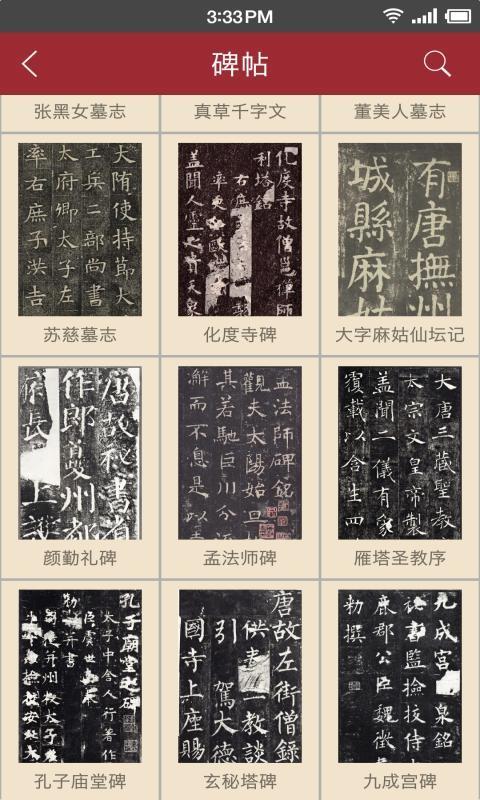 3:33PM
碑帖
张黑女墓志
真草千字文
董美人墓志
大隋使持節大
工兵二部尚書
太府卿太子左
率右庶子洪吉
化度寺故僧邕禅師
塔銘
右庶
率更
歐
蓋聞人靈之貴天象
有唐撫州
城縣麻姑
苏慈墓志
化度寺碑
大字麻姑仙坛记
唐故秘書省
作郎夔州都
孟法師碑銘
觀夫太陽始旦
其若馳巨川分
解而不息是以
大唐三藏聖教
太宗文皇帝製
蓋聞二儀有象
覆載以含生四
颜勤礼碑
孟法师碑
雁塔圣教序
孔子廟堂之碑
太子中舍人行著作
臣虞世
勅并書
唐故左街僧錄
供奉三教談
引駕大德
國寺上座賜
九成宫
泉銘
秘書監撿挍侍
鹿郡公臣魏徵
勅撰
孔子庙堂碑
玄秘塔碑
九成宫碑